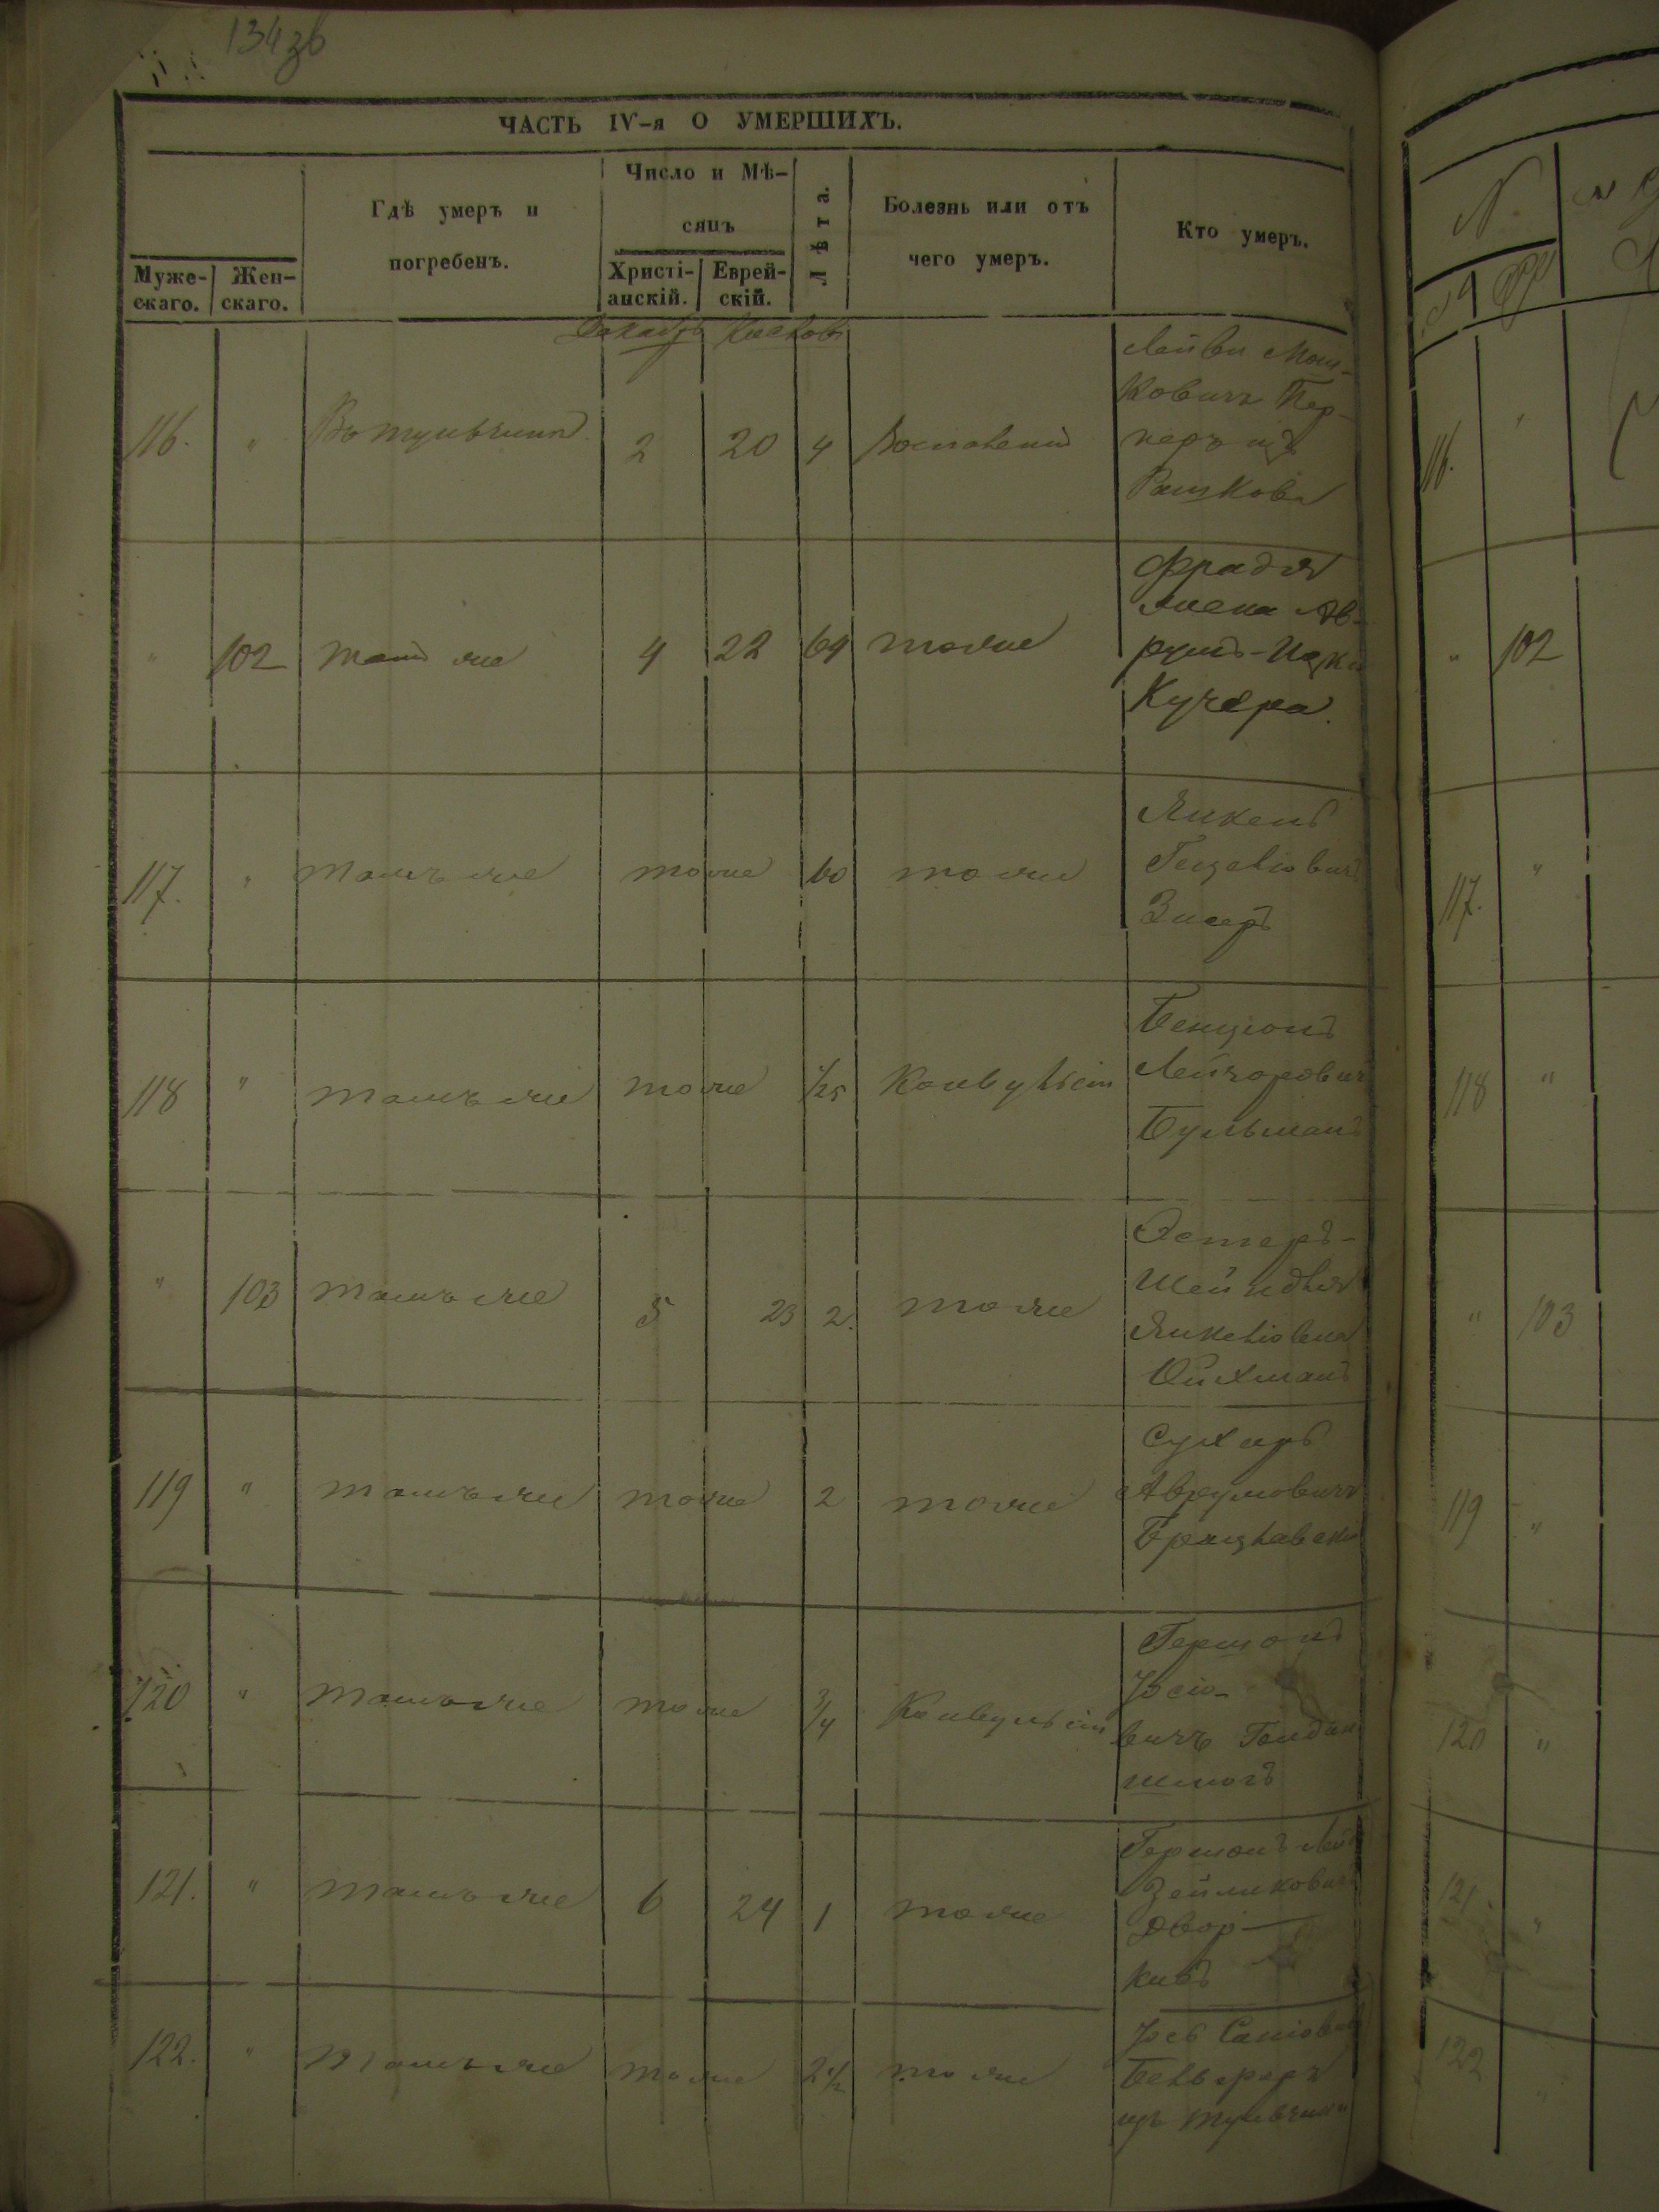 134зв
ЧАСТЬ IV-я О УМЕРШИХЪ.
Муже-
скаго.
Жен-
скаго.
Гдѣ умеръ и
погребенъ.
Число и Мѣ-
сяцъ
Христі-
анскій.
Еврей-
скій.
Лѣта.
Болезнь или отъ
чего умеръ.
Кто умеръ.
Декабрь Кислевъ
116. " Въ Тульчинѣ 2 20 4
Мош-
ковичъ
изъ
Рашкова
" 102 тамъ же 4 22 69 тоже
Фрадя
жена Ав-
румъ-Ицка
Кучера.
117. " тамъ же тоже 60 тоже
Янкель
Зисеръ
118 " тамъ же тоже 1/25 Конвульсіи
Бенціонъ
Лейзоровичъ
Бульманъ
" 103 тамъ же 5 23 2. тоже
Эстеръ-
Шейндля
Янкеліовна
119 " тамъ же тоже 2 тоже
Сухеръ
Аврумовичъ
Брацлавскій
120 " тамъ же тоже 3/4 Конвульсіи
Гершонъ
Іосіо-
вичъ
121. " тамъ же 6 24 1 тоже
Гершонъ
Зейликовичъ
Двор-
кинъ
122. " тамъ же тоже 2 1/2 тоже
изъ Тульчина
N
116. "
" 102
117. "
118 "
" 103
119 "
120 "
121. "
122 "